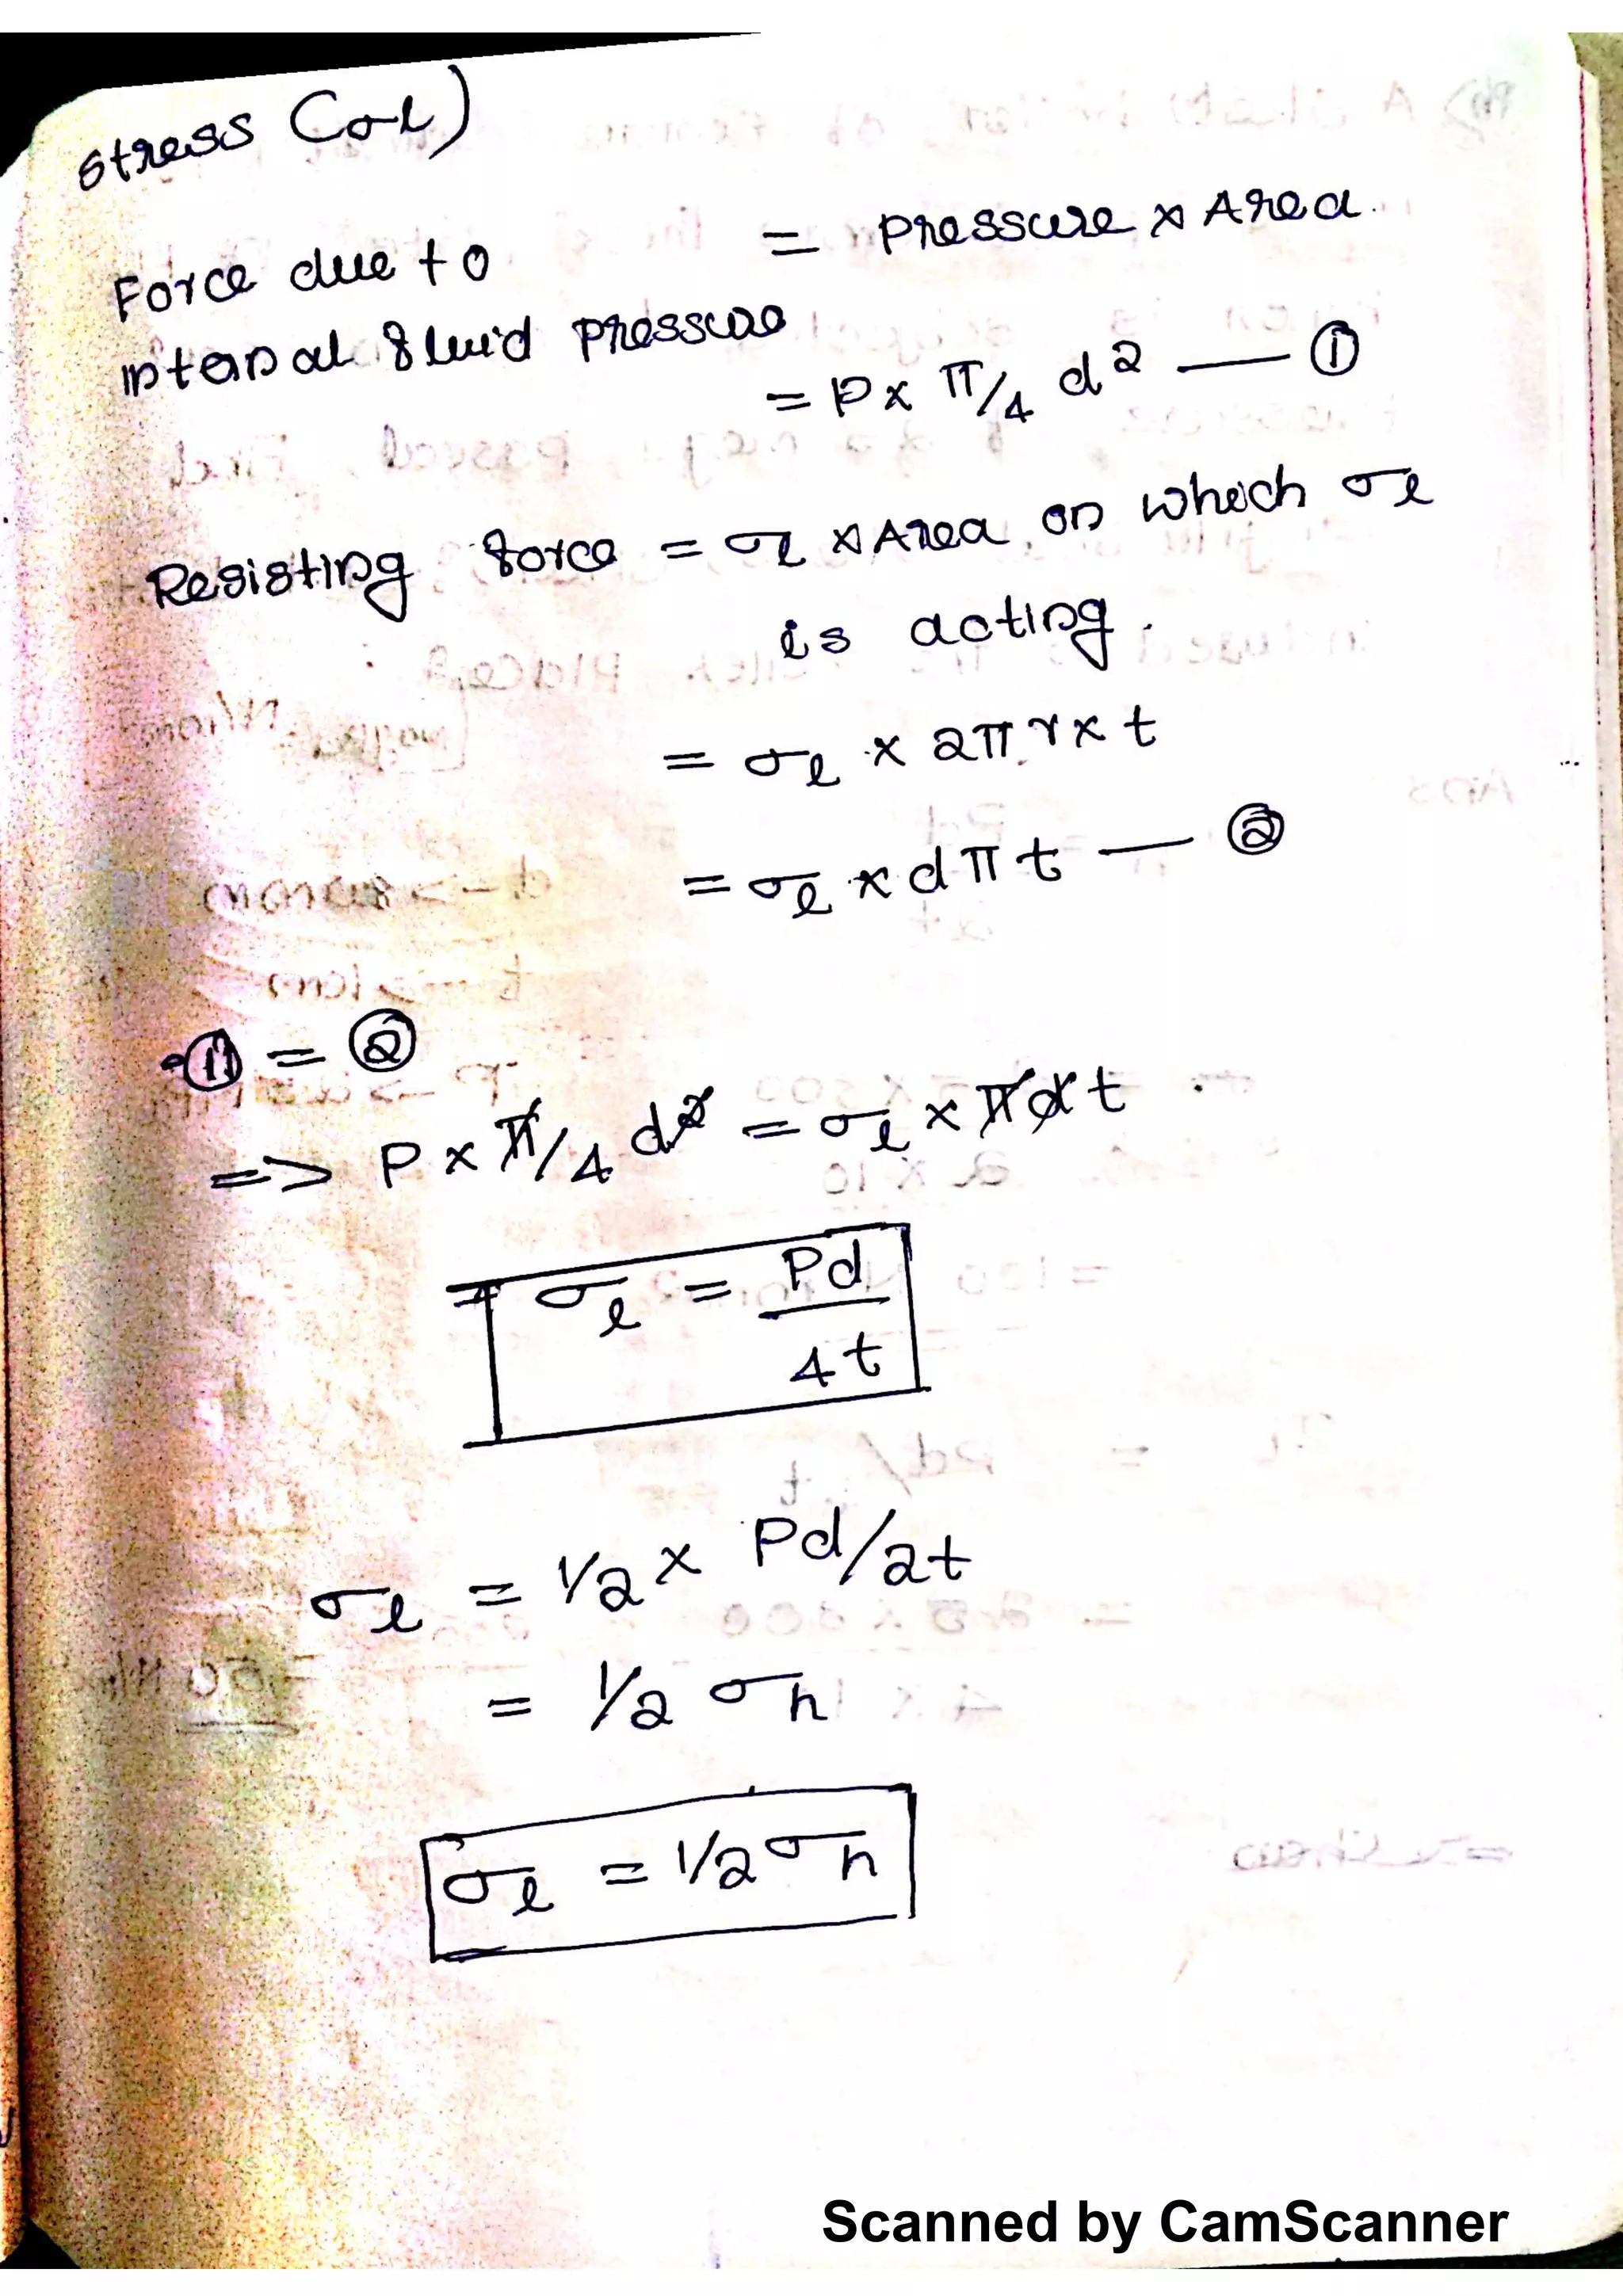 stress (σl)
Force due to = Pressure x Area.
internal fluid pressure
= P x π/4 d2 — ①
Resisting force = σl x Area on which σl
is acting.
= σl x 2πr x t
= σl x dπt — ②
① = ②
=> P x π/4 d2 = σl x πdt
σl = Pd
4t
σl = 1/2 x Pd/2t
= 1/2 σh
σl = 1/2 σh
Scanned by CamScanner